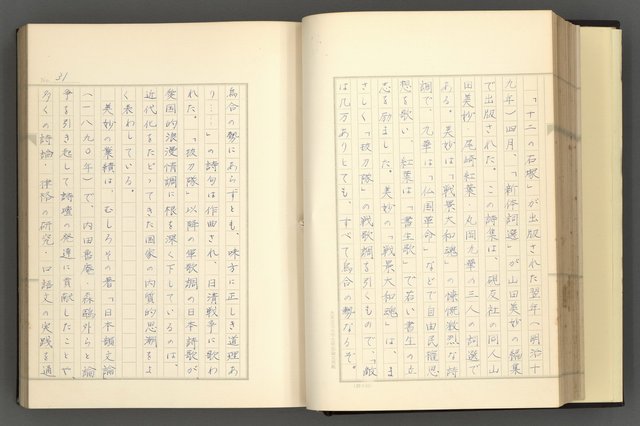 「十二の石塚」が出版された翌年(明治十
九年)四月、「新体詞選」が山田美妙の編集
で出版された。この詩集は、硯友社の同人山
田美妙・尾崎紅葉・丸岡九華の三人の詞選で
ある。美妙は「戦景大和魂」の慷慨激烈な詩
調で、九華は「仏国革命」などで自由民権思
想を歌い、紅葉は「書生歌」で若い書生の立
志を励ました。美妙の「戦景大和魂」は、ま
さしく「抜刀隊」の戦歌調を引くもので、「敵
は几万ありとても、すべて烏合の勢なるぞ。
No. 31
烏合の勢にあらずとも、味方に正しき道理あ
り……」の詩句は作曲され、日清戦争に歌わ
れた。「抜刀隊」以降の軍歌調の日本詩歌が、
愛国的浪漫情調に根を深く下しているのは、
近代化をたどってきた国家の内質的思潮をよ
く表わしている。
美妙の業績は、むしろその著「日本韻文論
(一八九〇年)で、内田魯庵・森鷗外らと論
争を引き起して詩壇の発達に貢献したことや、
多くの詩論・律格の研究・口語文の実践を通